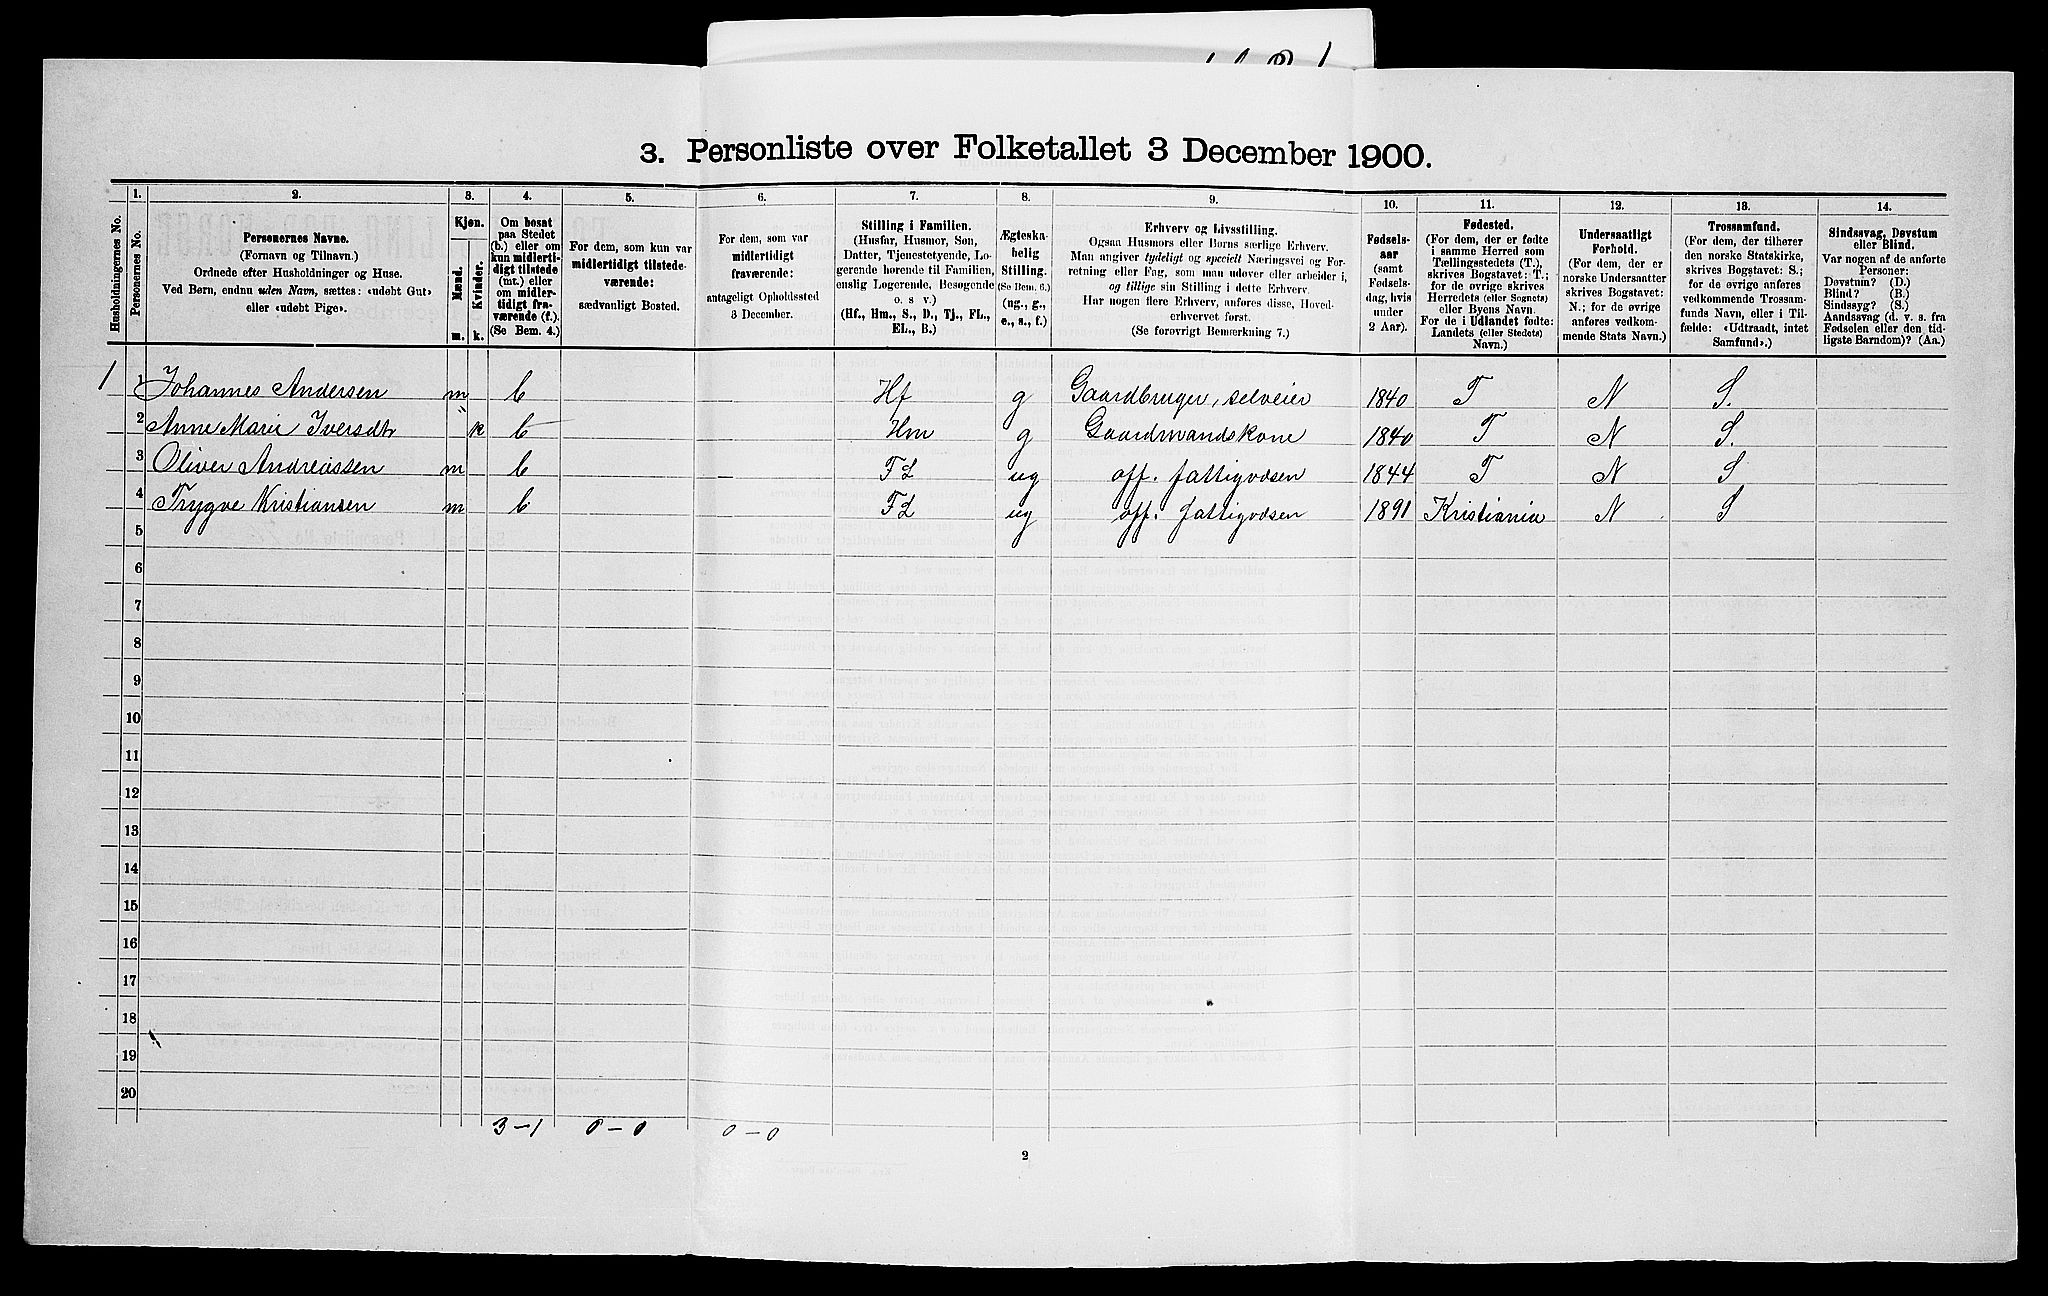 3. Personliste over Folketallet 3 December 1900.
1. 2. 3. 4. 5. 6. 7. 8. 9. 10. 11. 12. 13. 14.
Husholdningernes No.
Personernes No.
Personernes Navne.
(Fornavn og Tilnavn.)
Ordnede efter Husholdninger og Huse.
Ved Børn, endnu uden Navn, sættes: «udøbt Gut»
eller «udøbt Pige».
Kjøn.
Mænd.
Kvinder.
m. k.
Om bosat
paa Stedet
(b.) eller om
kun midlerti-
digt tilstede
(mt.) eller
om midler-
tidigt fra-
værende (f.).
(Se Bem. 4.)
For dem, som kun var
midlertidigt tilstede-
værende:
sædvanligt Bosted.
For dem, som var
midlertidigt
fraværende:
antageligt Opholdssted
3 December.
Stilling i Familien.
(Husfar, Husmor, Søn,
Datter, Tjenestetyende, Lo-
gerende hørende til Familien,
enslig Logerende, Besøgende
o. s v.)
(Hf., Hm., S., D., Tj., FL.,
EL., B.)
Ægteska-
belig
Stilling.
(Se Bem. 6.)
(ug., g.,
e., s., f.)
Erhverv og Livsstilling.
Ogsaa Husmors eller Børns særlige Erhverv.
Man angiver tydeligt og specielt Næringsvei og For-
retning eller Fag, som man udøver eller arbeider i,
og tillige sin Stilling i dette Erhverv.
Har nogen flere Erhverv, anføres disse, Hoved-
erhvervet først.
(Se forøvrigt Bemerkning 7.)
Fødsels-
aar
(samt
Fødsels-
dag, hvis
under
2 Aar).
Fødested.
(For dem, der er fødte
i samme Herred som
Tællingsstedets (T.),
skrives Bogstavet: T.;
for de øvrige skrives
Herredets (eller Sognets)
eller Byens Navn.
For de i Udlandet fødte:
Landets (eller Stedets)
Navn.)
Undersaatligt
Forhold.
(For dem, der er
norske Undersaatter
skrives Bogstavet:
N.; for de øvrige
anføres vedkom-
mende Stats Navn.)
Trossamfund.
(For dem, der tilhører
den norske Statskirke,
skrives Bogstavet: S.;
for de øvrige anføres
vedkommende Trossam-
funds Navn, eller i Til-
fælde: «Udtraadt, intet
Samfund».)
Sindssvag, Døvstum
eller Blind.
Var nogen af de anførte
Personer:
Døvstum? (D.)
Blind? (B.)
Sindssyg? (S.)
Aandssvag (d. v. s. fra
Fødselen eller den tid-
ligste Barndom)? (Aa.)
1 1 Johannes Andersen m b Hf g Gaardbruger, selveier 1840 T N S.
2 Anne Marie Iversdtr k b Hm g Gaardmandskone 1840 T N S.
3 Oliver Andreassen m b FL ug off. fattigvæsen 1844 T N S
4 Trygve Kristiansen m b FL ug off. fattigvæsen 1891 Kristiania N S
5
6
7
8
9
10
11
12
13
14
15
16
17
18
19
20
3-1 0-0 0-0
2